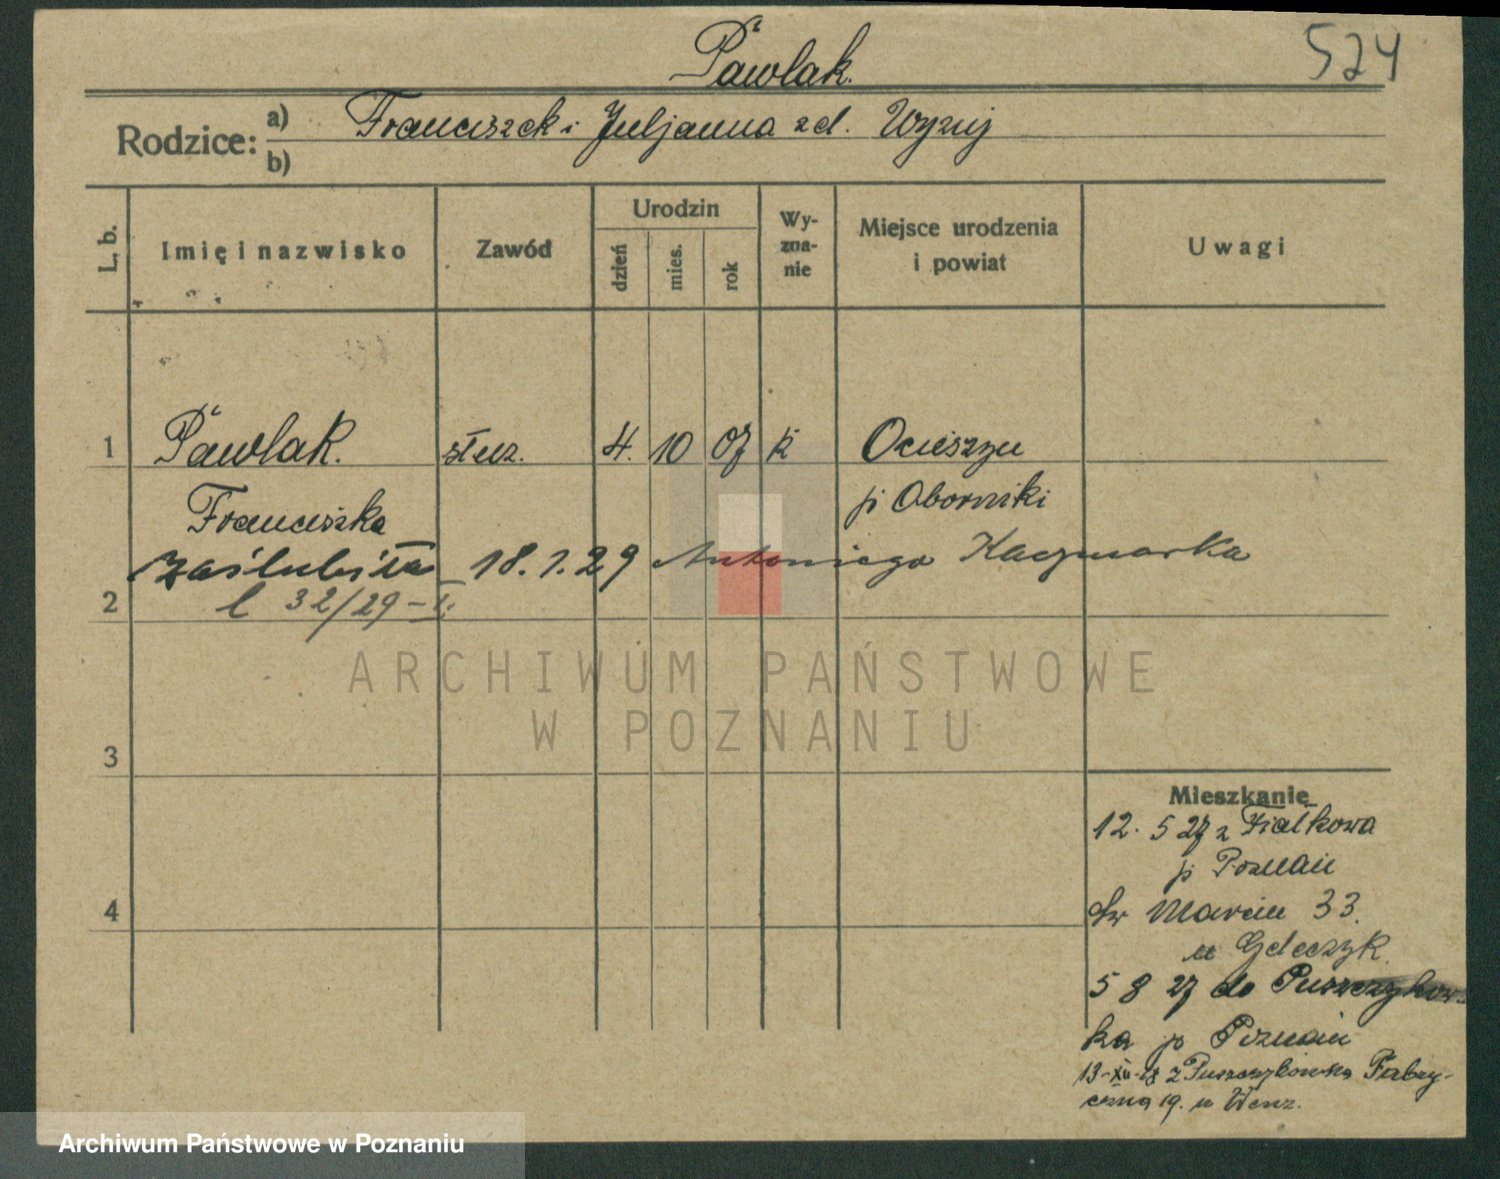 524
Pawlak.
Rodzice: a) Franciszek i Juljanna zd.
b)
L. b.
Imię i nazwisko
Zawód
Urodzin
dzień
mies.
rok
Wy-
zna-
nie
Miejsce urodzenia
i powiat
Uwagi
1 Pawlak. służ. 4. 10 07 k Ocieszyn
Franciszka p Oborniki
zaślubiła 18.1.29 Antoniego Kaczmarka
2 l 32/29-I.
ARCHIWUM PAŃSTWOWE
W POZNANIU
3
Mieszkanie
12. 5 27 z Fiałkowa
p Poznań
4 św Marcin 33.
u
5 8 27 do Puszczykow-
ka p Poznań
13-XII-28 z Puszczykówka Fabry-
czna 19. u
Archiwum Państwowe w Poznaniu